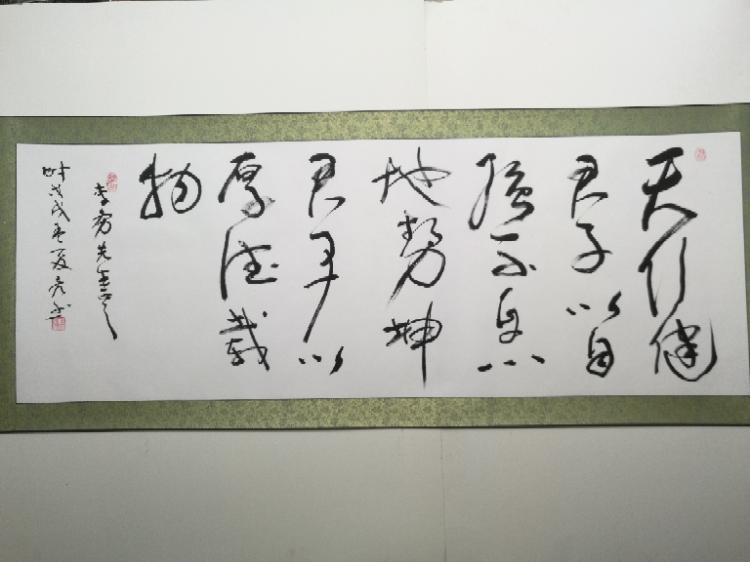 天行健
君子以自
强不息
地势坤
君子以
厚德载
物
李方先生灵
时戊戌孟夏亮书